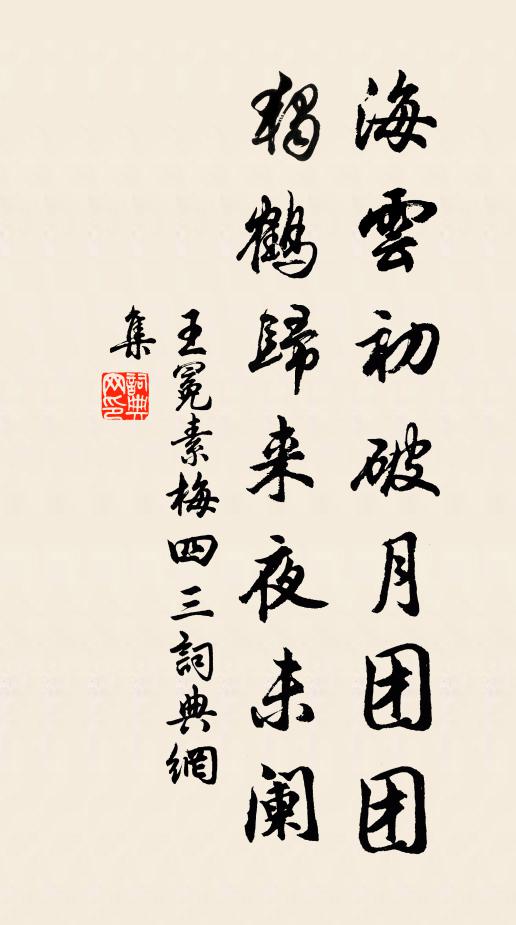 海雲初破月团团
獨鶴歸来夜未阑
王冕素梅四三詞典網
集
詞典网印